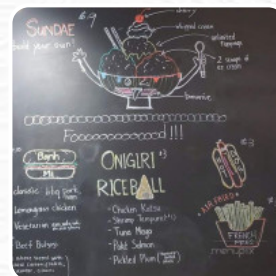 SUNDAE $9
build your own
cherry
whipped cream
unlimited
toppings
2 scoops of
ice cream
banana
Foooooooood!!!
Banh
Mi
classic bbq pork
Lemongrass chicken
Vegetarian
Beef Bulgogi
ONIGIRI $3
RICEBALL
- Chicken Katsu
- Shrimp Tempura
- Tuna Mayo
- Salmon
- Pickled Plum
$3
AIR FRIED
FRENCH
FRIES
menupix